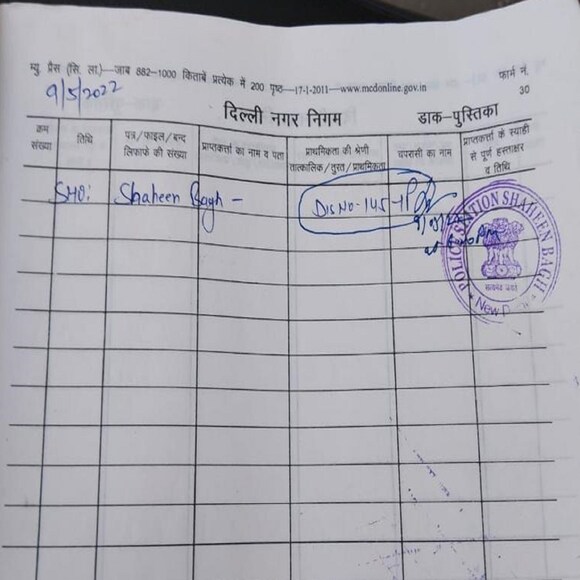 म्यु प्रैस (सि. ला.)—जाब 882–1000 किताबें प्रत्येक में 200 पृष्ठ—17-1-2011—www.mcdonline.gov.in
फार्म नं.
30
9/5/2022
दिल्ली नगर निगम
डाक-पुस्तिका
क्रम
संख्या
तिथि
पत्र/फाइल/बन्द
लिफाफे की संख्या
प्राप्तकर्त्ता का नाम व पता
प्राथमिकता की श्रेणी
तात्कालिक/तुरत/प्राथमिकता
चपरासी का नाम
प्राप्तकर्त्ता के स्याही
से पूर्ण हस्ताक्षर
व तिथि
SHO: Shaheen Bagh -
Dis No-145-
POLICE STATION SHAHEEN BAGH
सत्यमेव जयते